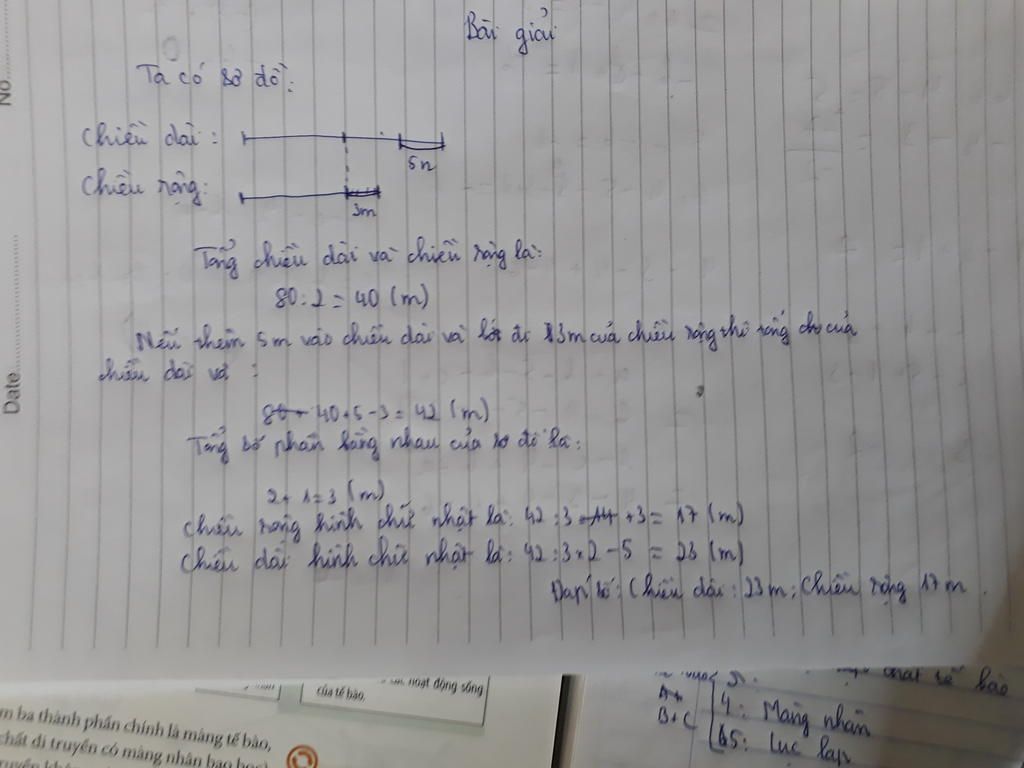 Bài giải
No
Ta có sơ đồ:
Chiều dài:
5m
Chiều rộng:
3m
Tổng chiều dài và chiều rộng là:
80:2 = 40 (m)
Nếu thêm 5m vào chiều dài và bớt đi 3m của chiều rộng thì tổng của
chiều dài và :
Date
40+5-3 = 42 (m)
Tổng số phần bằng nhau của sơ đồ là:
2+1=3 (m)
Chiều rộng hình chữ nhật là: 42:3 +3 = 17 (m)
Chiều dài hình chữ nhật là: 42:3×2-5 = 23 (m)
Đáp số: Chiều dài: 23m; Chiều rộng 17m.
hoạt động sống
của tế bào.
m ba thành phần chính là màng tế bào,
chất di truyền có màng nhân
tế bào
B+C
4: Màng nhân
5: Lục lạp